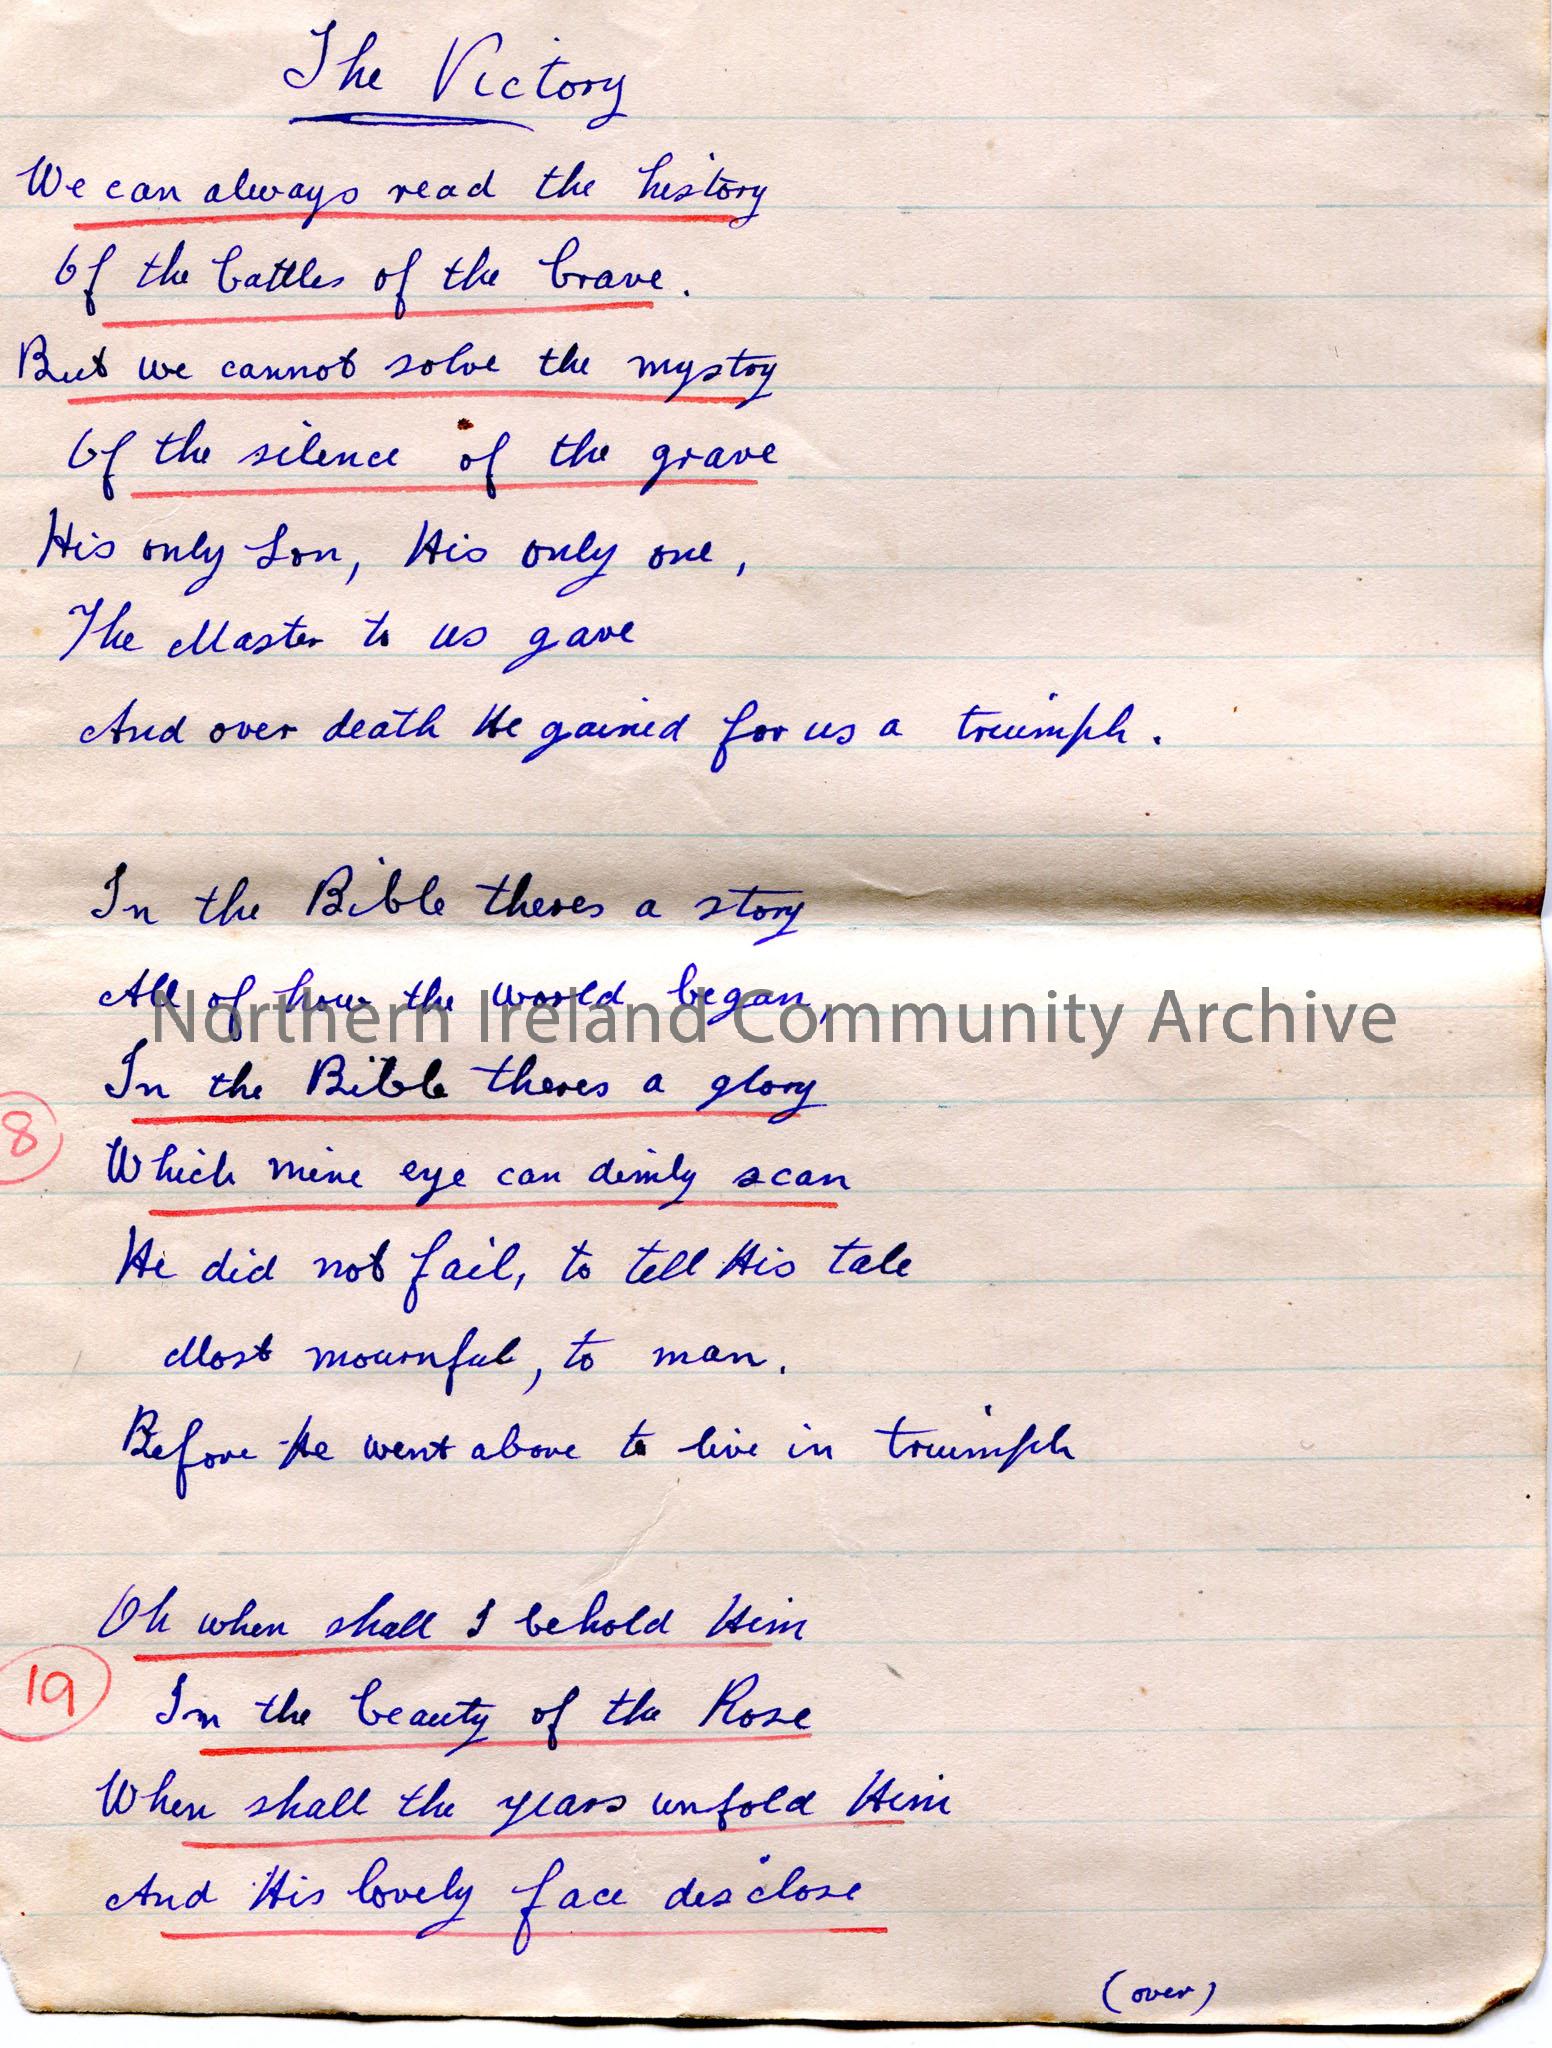 The Victory
We can always read the history
Of the battles of the brave.
But we cannot solve the mystry
Of the silence of the grave
His only Son, His only one,
The Master to us gave
And over death He gained for us a truimph.
In the Bible theres a story
All of how the world began,
Northern Ireland Community Archive
In the Bible theres a glory
8
Which mine eye can dimly scan
He did not fail, to tell His tale
Most mournful, to man.
Before He went above to live in truimph
Oh when shall I behold Him
19
In the beauty of the Rose
When shall the years unfold Him
And His lovely face disclose
(over)